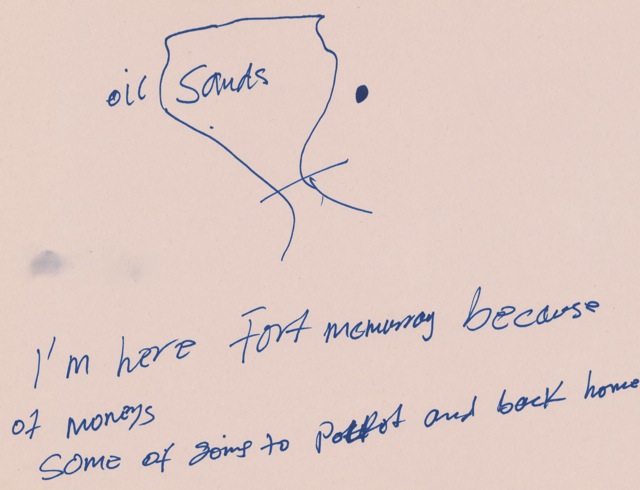 oil Sands
I'm here Fort mcmurray because
of moneys
some of going to and back home